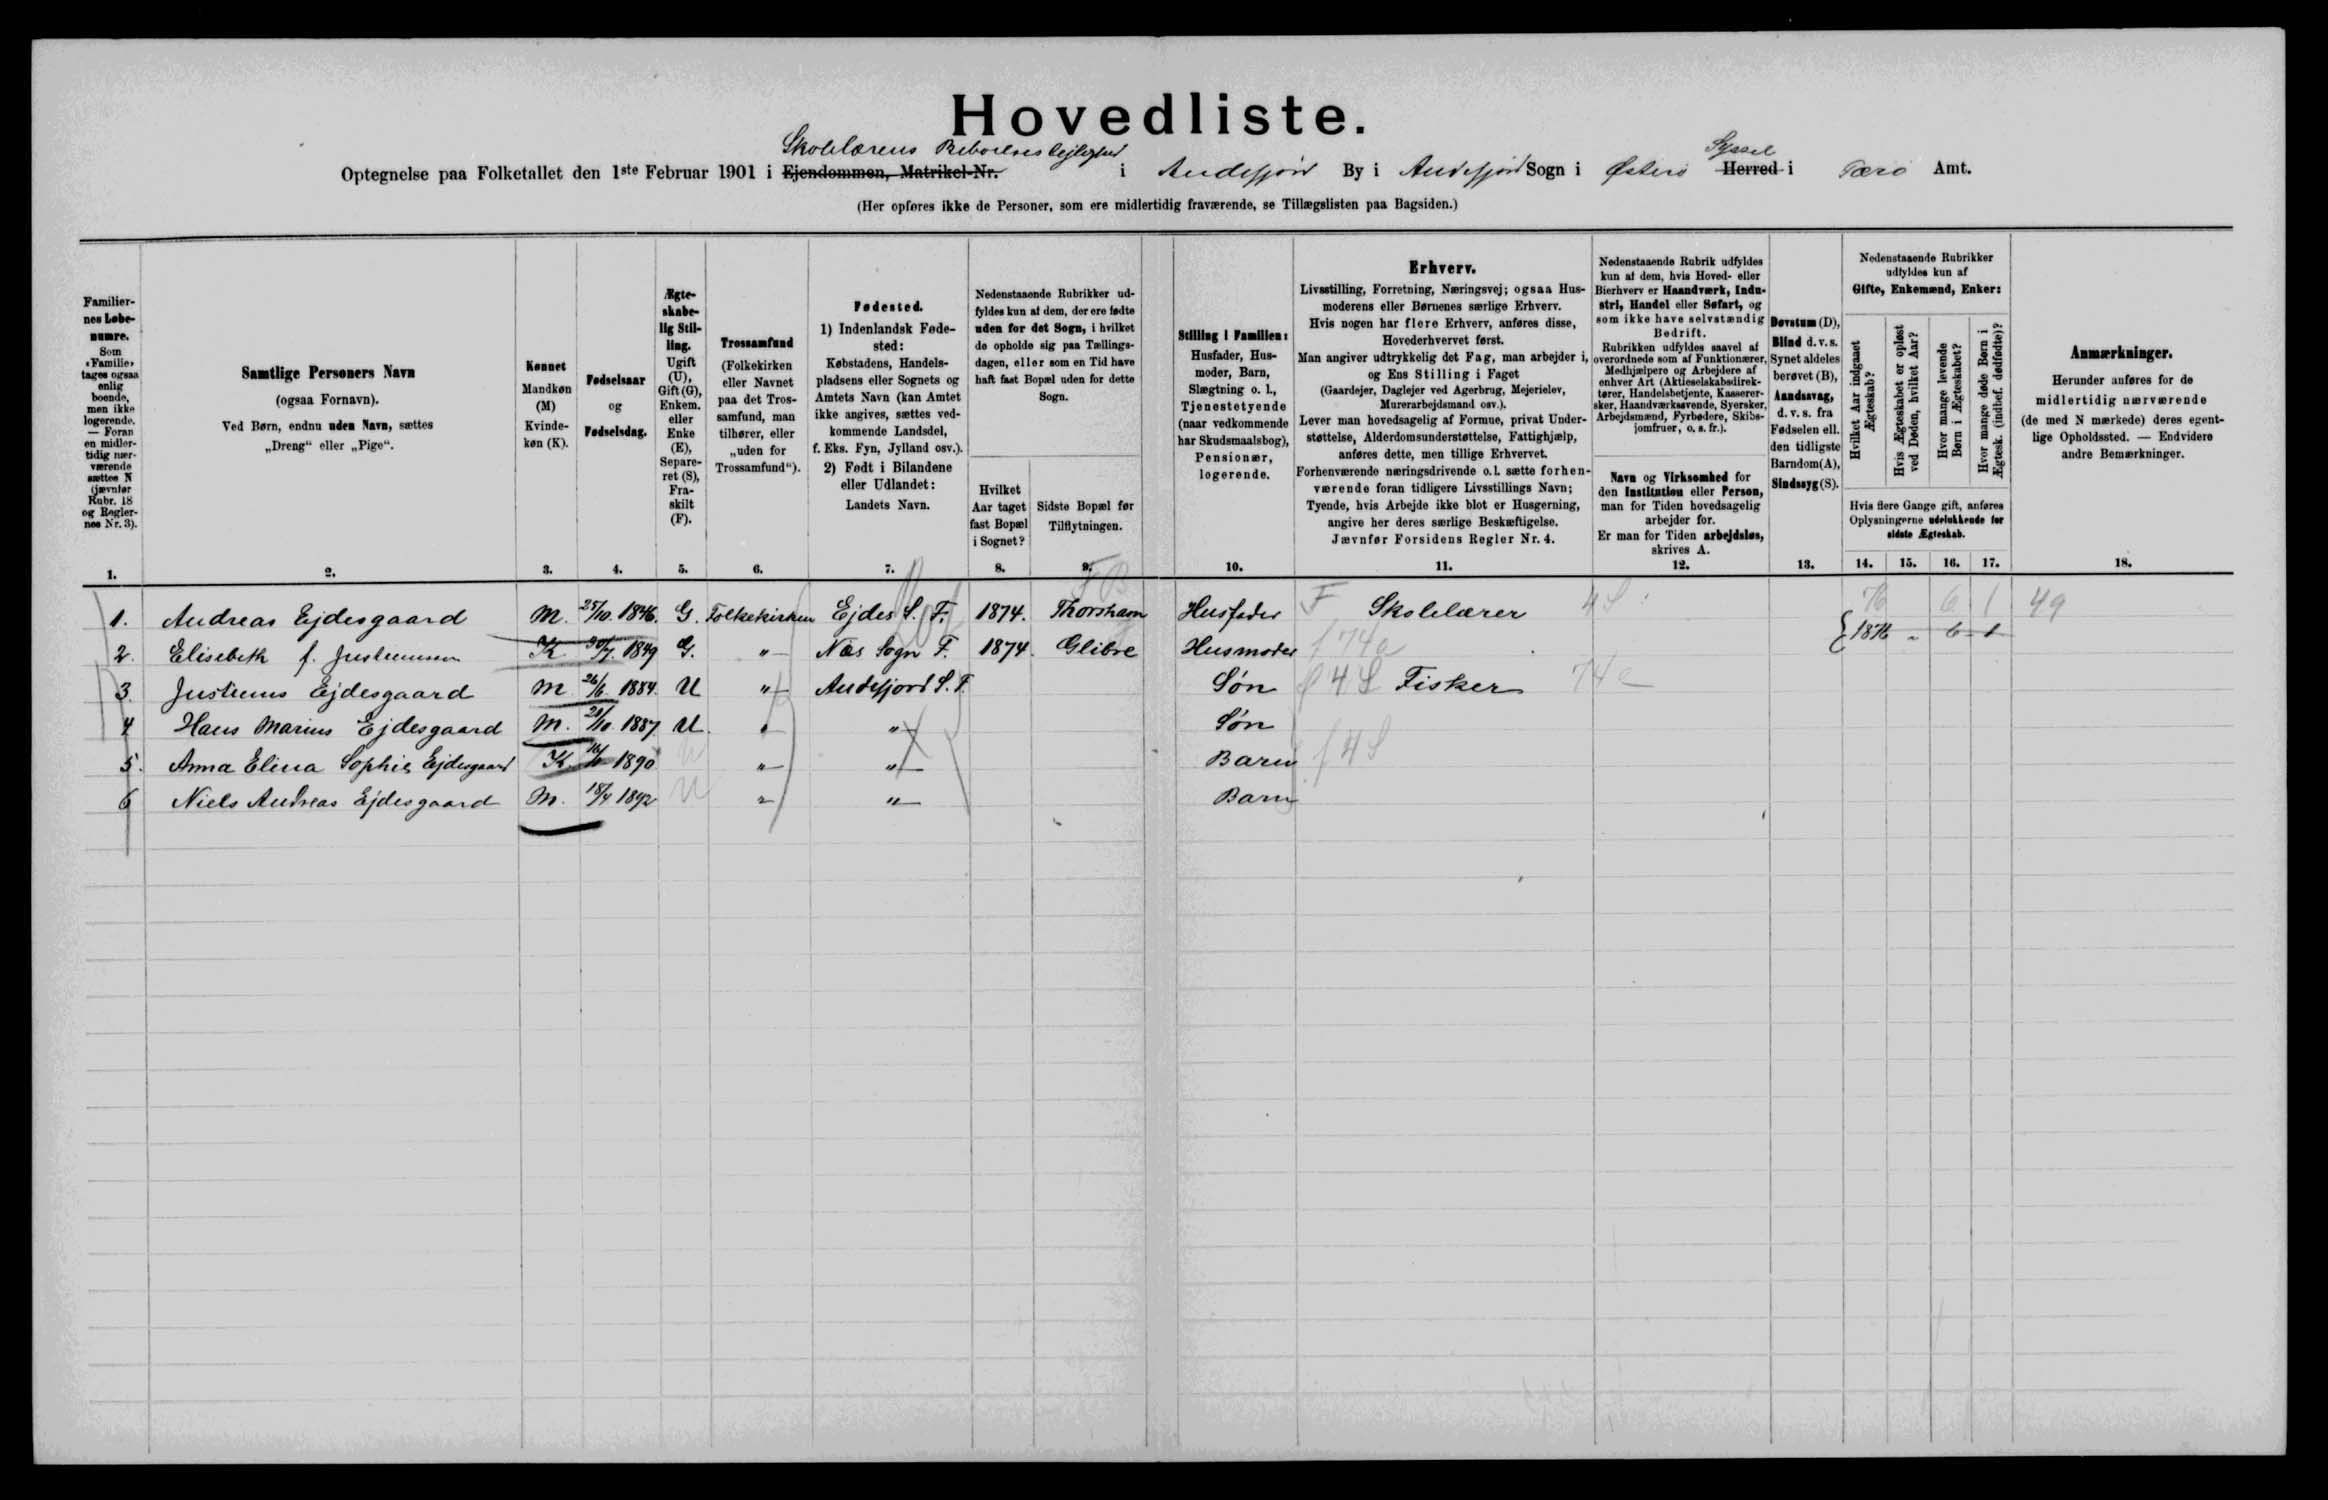 Hovedliste.
Skolelærens Beboelseslejlighed
Syssel
Optegnelse paa Folketallet den 1ste Februar 1901 i Ejendommen, Matrikel-Nr. i Andefjord By i Andefjord Sogn i Østerø Herred i Færø Amt.
(Her opføres ikke de Personer, som ere midlertidig fraværende, se Tillægslisten paa Bagsiden.)
Familiernes Løbenumre. Som «Familie» tages ogsaa enlig boende, men ikke logerende. — Foran en midlertidig nærværende sættes N (jævnfør Rubr. 18 og Reglernes Nr. 3).
Samtlige Personers Navn (ogsaa Fornavn). Ved Børn, endnu uden Navn, sættes „Dreng“ eller „Pige“.
Kønnet Mandkøn (M) Kvindekøn (K).
Fødselsaar og Fødselsdag.
Ægteskabelig Stilling. Ugift (U), Gift (G), Enkem. eller Enke (E), Separeret (S), Fraskilt (F).
Trossamfund (Folkekirken eller Navnet paa det Trossamfund, man tilhører, eller „uden for Trossamfund“).
Fødested. 1) Indenlandsk Fødested: Købstadens, Handelspladsens eller Sognets og Amtets Navn (kan Amtet ikke angives, sættes vedkommende Landsdel, f. Eks. Fyn, Jylland osv.). 2) Født i Bilandene eller Udlandet: Landets Navn.
Nedenstaaende Rubrikker udfyldes kun af dem, der ere fødte uden for det Sogn, i hvilket de opholde sig paa Tællingsdagen, eller som en Tid have haft fast Bopæl uden for dette Sogn.
Hvilket Aar taget fast Bopæl i Sognet?
Sidste Bopæl før Tilflytningen.
Stilling i Familien: Husfader, Husmoder, Barn, Slægtning o. l., Tjenestetyende (naar vedkommende har Skudsmaalsbog), Pensionær, logerende.
Erhverv.
Livsstilling, Forretning, Næringsvej; ogsaa Husmoderens eller Børnenes særlige Erhverv.
Hvis nogen har flere Erhverv, anføres disse, Hovederhvervet først.
Man angiver udtrykkelig det Fag, man arbejder i, og Ens Stilling i Faget
(Gaardejer, Daglejer ved Agerbrug, Mejerielev, Murerarbejdsmand osv.).
Lever man hovedsagelig af Formue, privat Understøttelse, Alderdomsunderstøttelse, Fattighjælp, anføres dette, men tillige Erhvervet.
Forhenværende næringsdrivende o.l. sætte forhenværende foran tidligere Livsstillings Navn;
Tyende, hvis Arbejde ikke blot er Husgerning, angive her deres særlige Beskæftigelse.
Jævnfør Forsidens Regler Nr. 4.
Nedenstaaende Rubrik udfyldes kun af dem, hvis Hoved- eller Bierhverv er Haandværk, Industri, Handel eller Søfart, og som ikke have selvstændig Bedrift.
Rubrikken udfyldes saavel af overordnede som af Funktionærer, Medhjælpere og Arbejdere af enhver Art (Aktieselskabsdirektører, Handelsbetjente, Kasserersker, Haandværkssvende, Syersker, Arbejdsmænd, Fyrbødere, Skibsjomfruer, o. s. fr.).
Navn og Virksomhed for den Institution eller Person, man for Tiden hovedsagelig arbejder for.
Er man for Tiden arbejdsløs, skrives A.
Døvstum (D), Blind d. v. s. Synet aldeles berøvet (B), Aandssvag, d. v. s. fra Fødselen ell. den tidligste Barndom (A), Sindssyg (S).
Nedenstaaende Rubrikker udfyldes kun af Gifte, Enkemænd, Enker:
Hvilket Aar indgaaet Ægteskab?
Hvis Ægteskabet er opløst ved Døden, hvilket Aar?
Hvor mange levende Børn i Ægteskabet?
Hvor mange døde Børn i Ægtesk. (indbef. dødfødte)?
Hvis flere Gange gift, anføres Oplysningerne udelukkende for sidste Ægteskab.
Anmærkninger.
Herunder anføres for de midlertidig nærværende (de med N mærkede) deres egentlige Opholdssted. — Endvidere andre Bemærkninger.
1. 2. 3. 4. 5. 6. 7. 8. 9. 10. 11. 12. 13. 14. 15. 16. 17. 18.
1. Andreas Ejdesgaard M. 25/10. 1846. G. Folkekirken Ejdes S. F. 1874. Thorshavn Husfader F Skolelærer 4S 76 6 1 49
2. Elisebeth f. Justinussen K. 30/7. 1849 G. " Næs Sogn F. 1874. Glibre Husmoder f 74a 1876 " 6 1
3. Justinus Ejdesgaard M 26/6. 1884. U " Andefjord S. F. Søn 4S Fisker 74a
4 Hans Marius Ejdesgaard M. 21/10. 1887. U " " Søn
5. Anna Elina Sophie Ejdesgaard K. 1890 U " " Barn f 4S
6 Niels Andreas Ejdesgaard M. 18/4 1892 U " " Barn